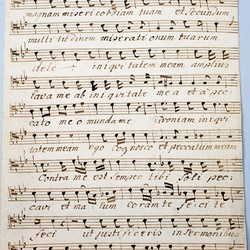 magnam misericordiam tuam et secundum
multitudinem miserationum tuarum
dele iniquitatem meam amplius
lava me ab iniquitate mea et a pec
cato meo munda me Quoniam iniqui
tatem meam ego cognosco et peccatum meum
Contra me est semper tibi soli pec
cavi et malum coram te feci te
feci ut justificeris in sermonibus